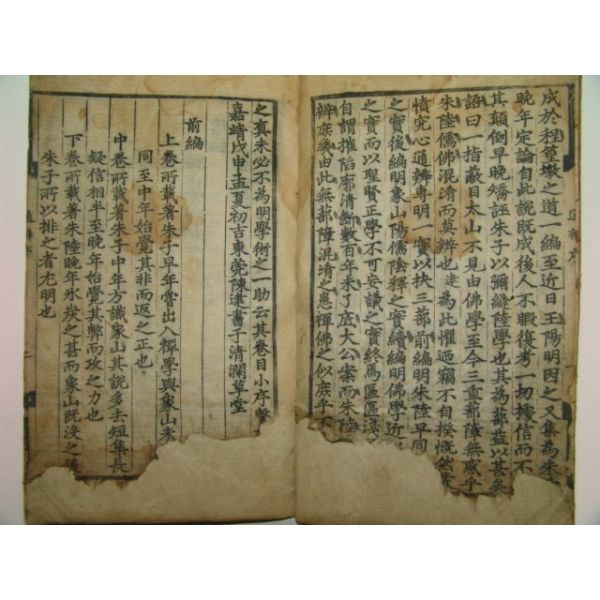 成於程篁墩之道一編至近日王陽明因之又集為朱子
晚年定論自此說既成後人不暇復考一切據信而不
其顛倒早晚矯誣朱子以彌縫陸學也其為蔀益以甚矣
語曰一指蔽目太山不見由佛學至今三重蔀障無惑乎
朱陸儒佛混淆而莫辨也建為此懼迺竊不自揆慨然發
憤究心通辨專明一實以抉三蔀前編明朱陸早同
之實後編明象山陽儒陰釋之實續編明佛學近似
之實而以聖賢正學不可妄議之實終焉區區淺
自謂摧陷廓清斷數百年未了底大公案而朱陸
辨庶幾由此無蔀障混淆之患禪佛之似庶乎不
之真未必不為明學術之一助云其卷目小序繫
嘉靖戊申孟夏初吉東莞陳建書于清瀾草堂
前編
上卷所載著朱子早年嘗出入禪學與象山未
同至中年始覺其非而返之正也
中卷所載著朱子中年方識象山其說多去短集長
疑信相半至晚年始覺其弊而攻之力也
下卷所載著朱陸晚年冰炭之甚而象山既沒之後
朱子所以排之者尤明也